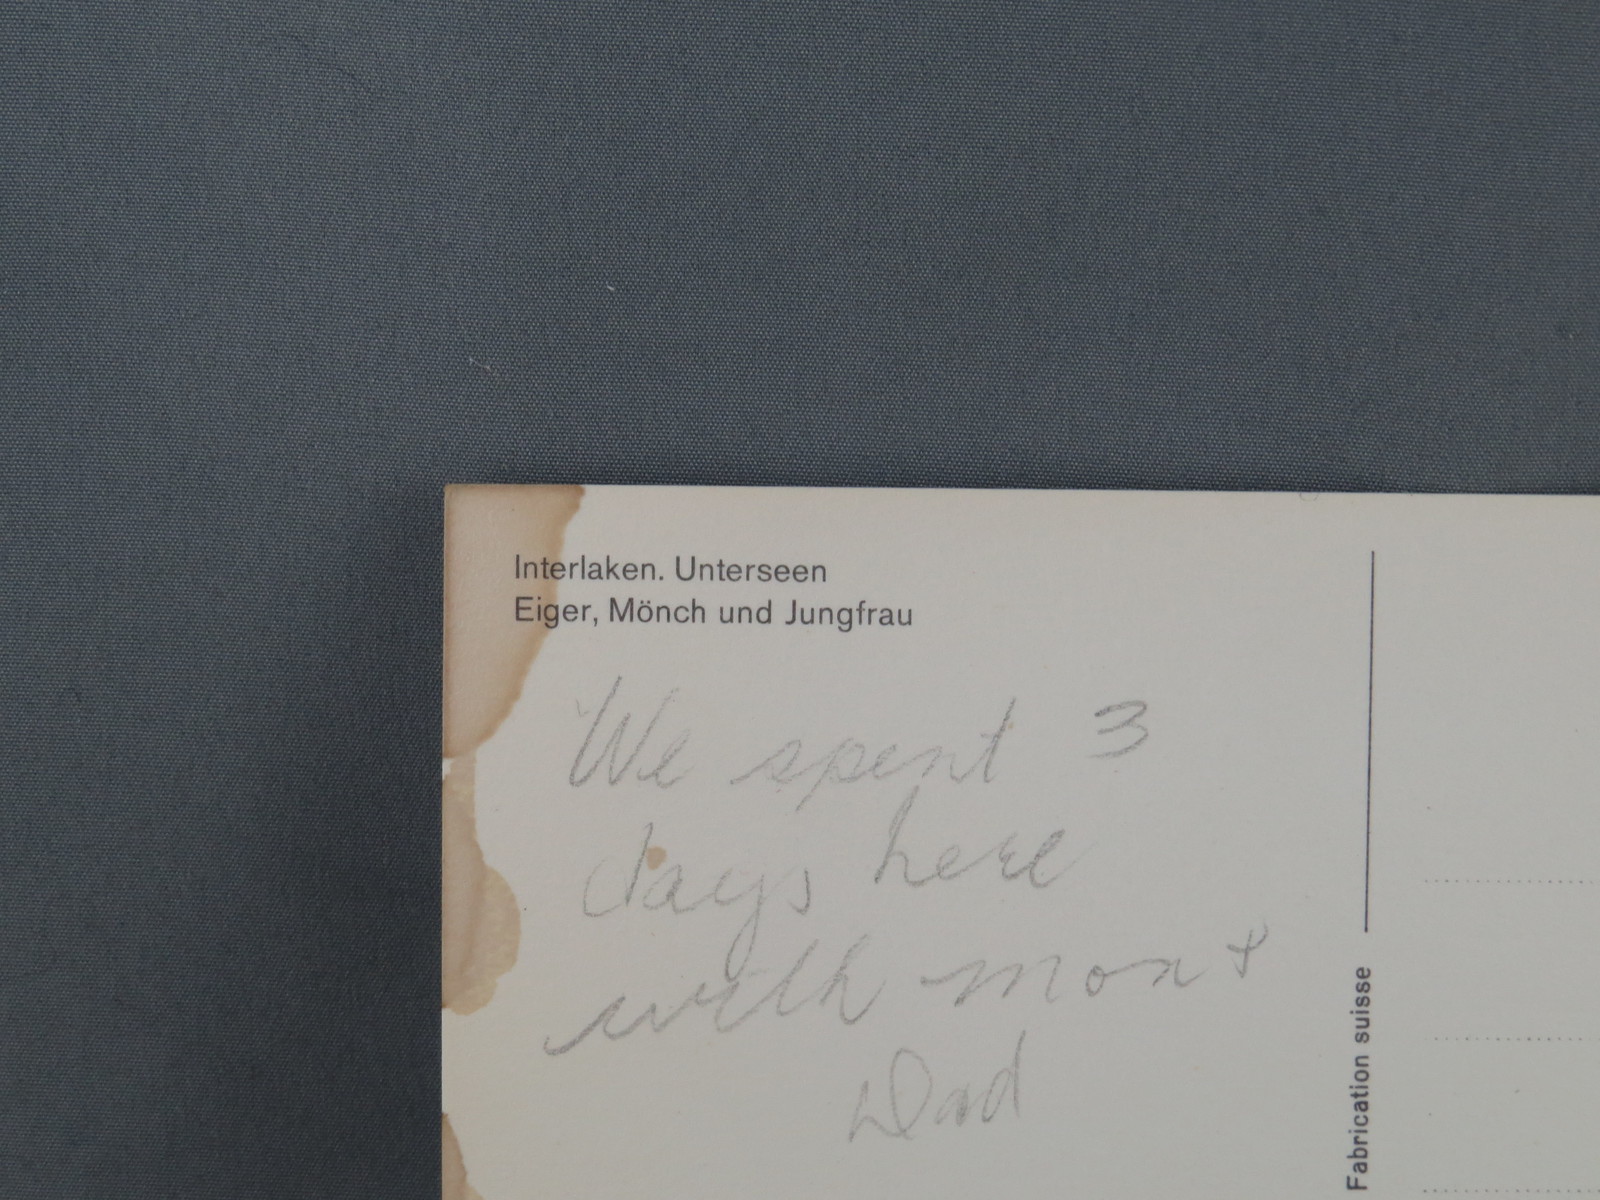 Interlaken. Unterseen
Eiger, Mönch und Jungfrau
We spent 3
days here
with mom +
Dad
Fabrication suisse